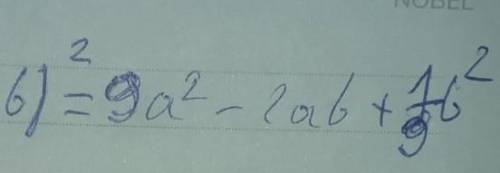 NOBEL
б)² = 9a² - 2ab + 1/9 b²